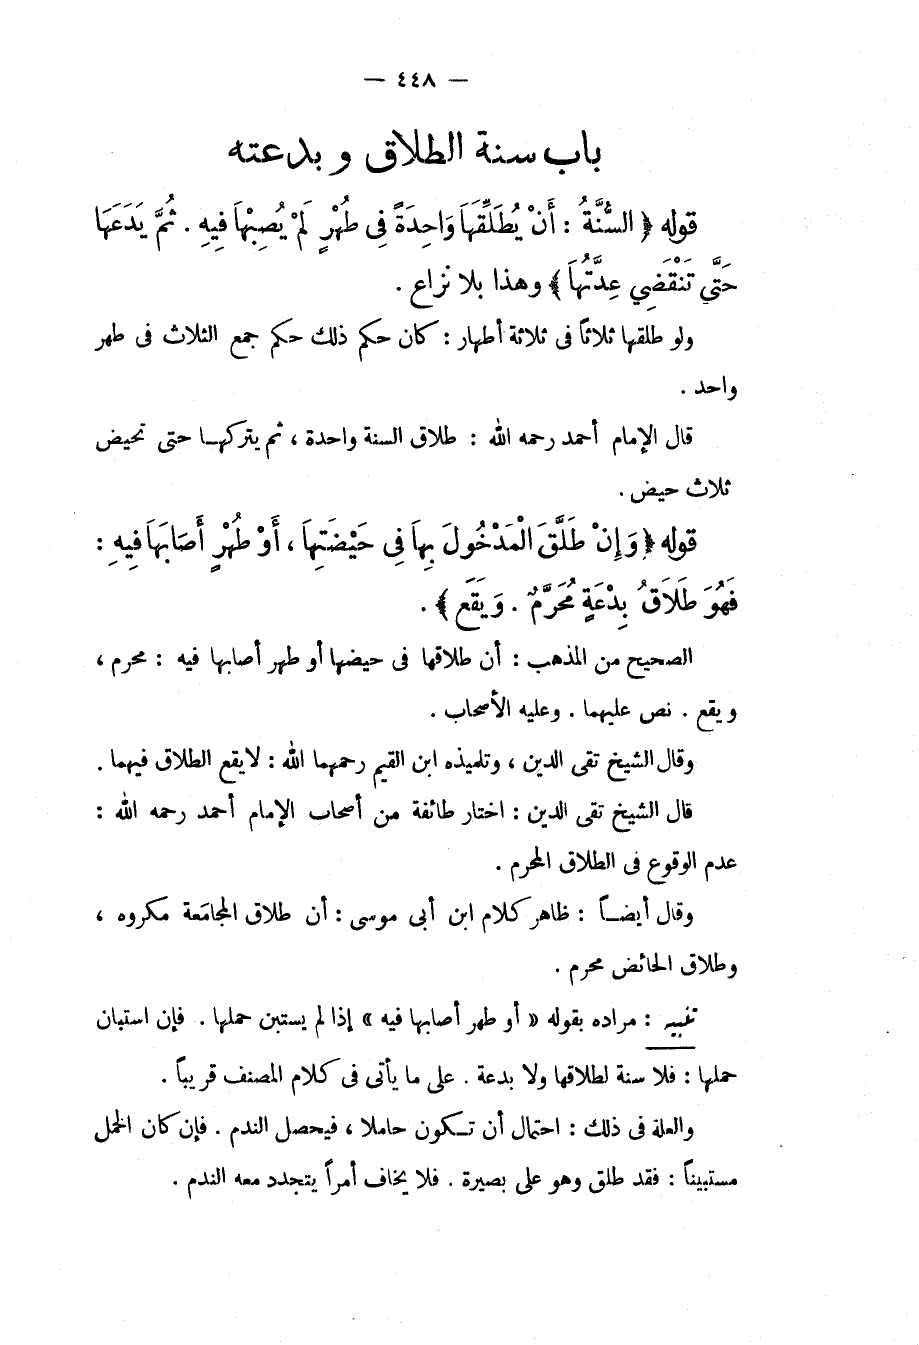 — ٤٤٨ —
باب سنة الطلاق وبدعته
قوله ﴿ السُّنَّةُ : أَنْ يُطَلِّقَهَا وَاحِدَةً فِى طُهْرٍ لَمْ يُصِبْهَا فِيهِ . ثُمَّ يَدَعَهَا
حَتَّى تَنْقَضِي عِدَّتُهَا ﴾ وهذا بلا نزاع .
ولو طلقها ثلاثاً فى ثلاثة أطهار : كان حكم ذلك حكم جمع الثلاث فى طهر
واحد .
قال الإمام أحمد رحمه الله : طلاق السنة واحدة ، ثم يتركهـا حتى تحيض
ثلاث حيض .
قوله ﴿ وَإِنْ طَلَّقَ الْمَدْخُولَ بِهَا فِى حَيْضَتِهَا ، أَوْ طُهْرٍ أَصَابَهَا فِيهِ :
فَهُوَ طَلَاقُ بِدْعَةٍ مُحَرَّمٌ . وَيَقَع ﴾ .
الصحيح من المذهب : أن طلاقها فى حيضها أو طهر أصابها فيه : محرم ،
ويقع . نص عليهما . وعليه الأصحاب .
وقال الشيخ تقى الدين ، وتلميذه ابن القيم رحمهما الله : لايقع الطلاق فيهما .
قال الشيخ تقى الدين : اختار طائفة من أصحاب الإمام أحمد رحمه الله :
عدم الوقوع فى الطلاق المحرم .
وقال أيضـاً : ظاهر كلام ابن أبى موسى : أن طلاق المجامَعة مكروه ،
وطلاق الحائض محرم .
تنبيه : مراده بقوله « أو طهر أصابها فيه » إذا لم يستبن حملها . فإن استبان
حملها : فلا سنة لطلاقها ولا بدعة . على ما يأتى فى كلام المصنف قريباً .
والعلة فى ذلك : احتمال أن تـكون حاملا ، فيحصل الندم . فإن كان الحمل
مستبيناً : فقد طلق وهو على بصيرة . فلا يخاف أمراً يتجدد معه الندم .